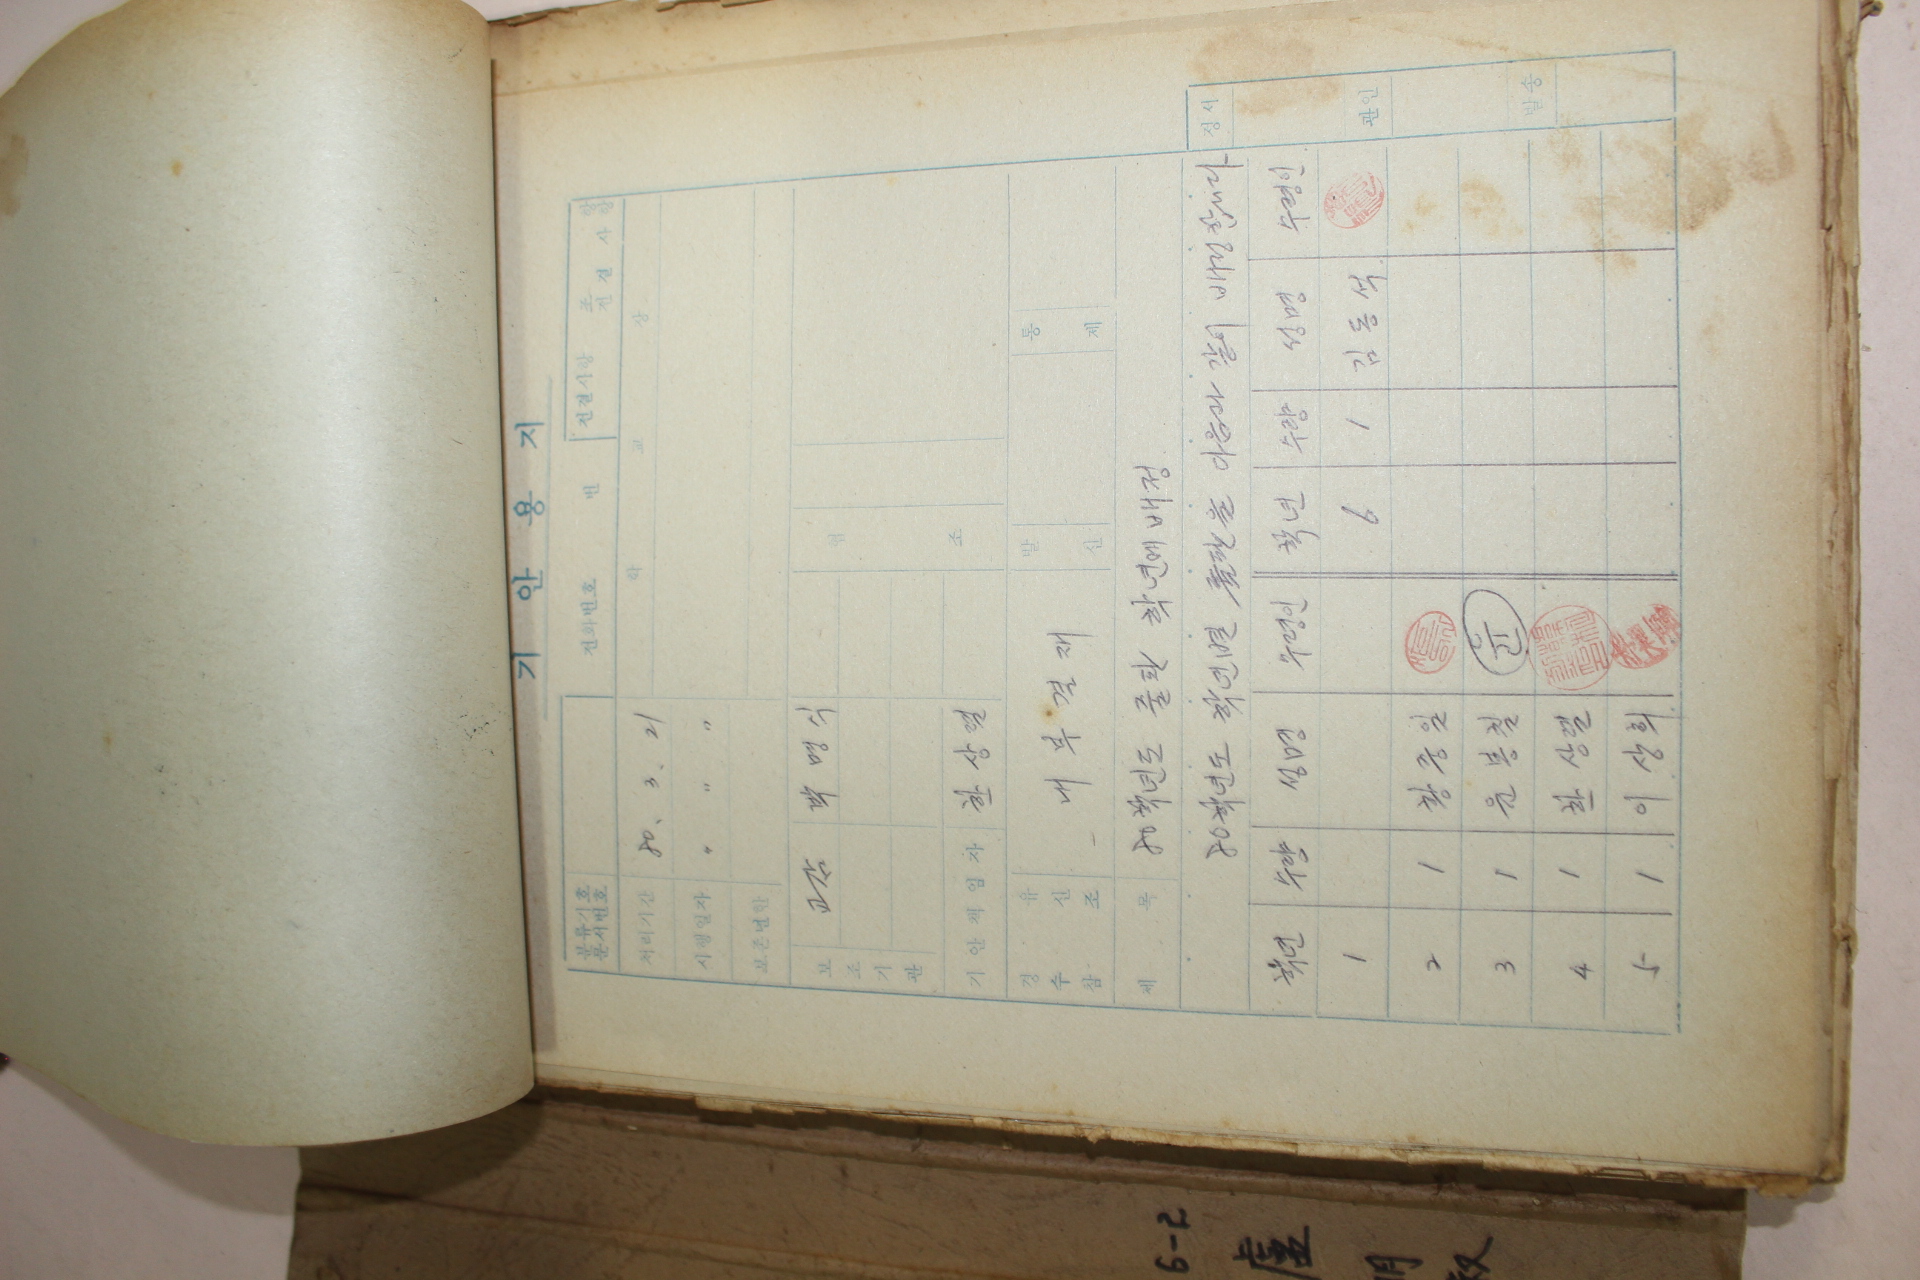 기 안 용 지
분류기호
문서번호
전화번호 번
전결사항
조 사 항
전 결 사 항
처리기간 80. 3. 21 학 교 장
시행일자 " " "
보존년한
보 조 기 관
교감 박명식
협 조
기 안 책 임 자 한상렬
경 유
수 신
참 조
내부결재
발 신
통 제
제 목 80학년도 홀판 학년에 배정
80학년도 학년별 홀판을 아음과 같이 배정합니다
정서
관인
발송
학년 수량 성명 수령인 학년 수량 성명 수령인
1 6 1 김동석
2 1 황종일
3 1 윤봉철 윤
4 1 한상렬
5 1 이상희
6-2